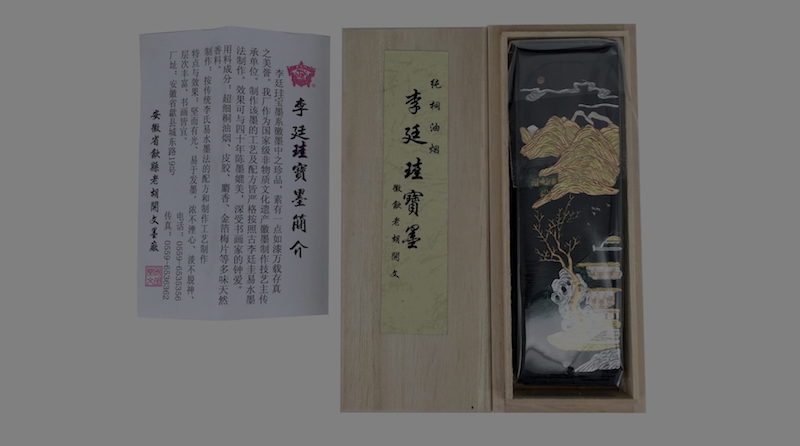 李廷珪寶墨簡介
李廷珪宝墨系徽墨中之珍品，素有一点如漆万载存真
之美誉。我厂作为国家级非物质文化遗产徽墨制作技艺主传
承单位，制作该墨的工艺及配方皆严格按照古李廷圭易水墨
法制作，效果可与四十年陈墨媲美，深受书画家的钟爱。
用料成分，超细桐油烟、皮胶、麝香、金箔梅片等多味天然
香料。
制作，按传统李氏易水墨法的配方和制作工艺制作
特点与效果，坚而有光、易于发墨，浓不滞心、淡不脱神、
层次丰富，书画皆宜。
厂址：安徽省歙县城东路19号
电话：0559-6535356
传真：0559-6536362
安徽省歙縣老胡開文墨廠
純桐油烟
李廷珪寶墨
徽歙老胡開文